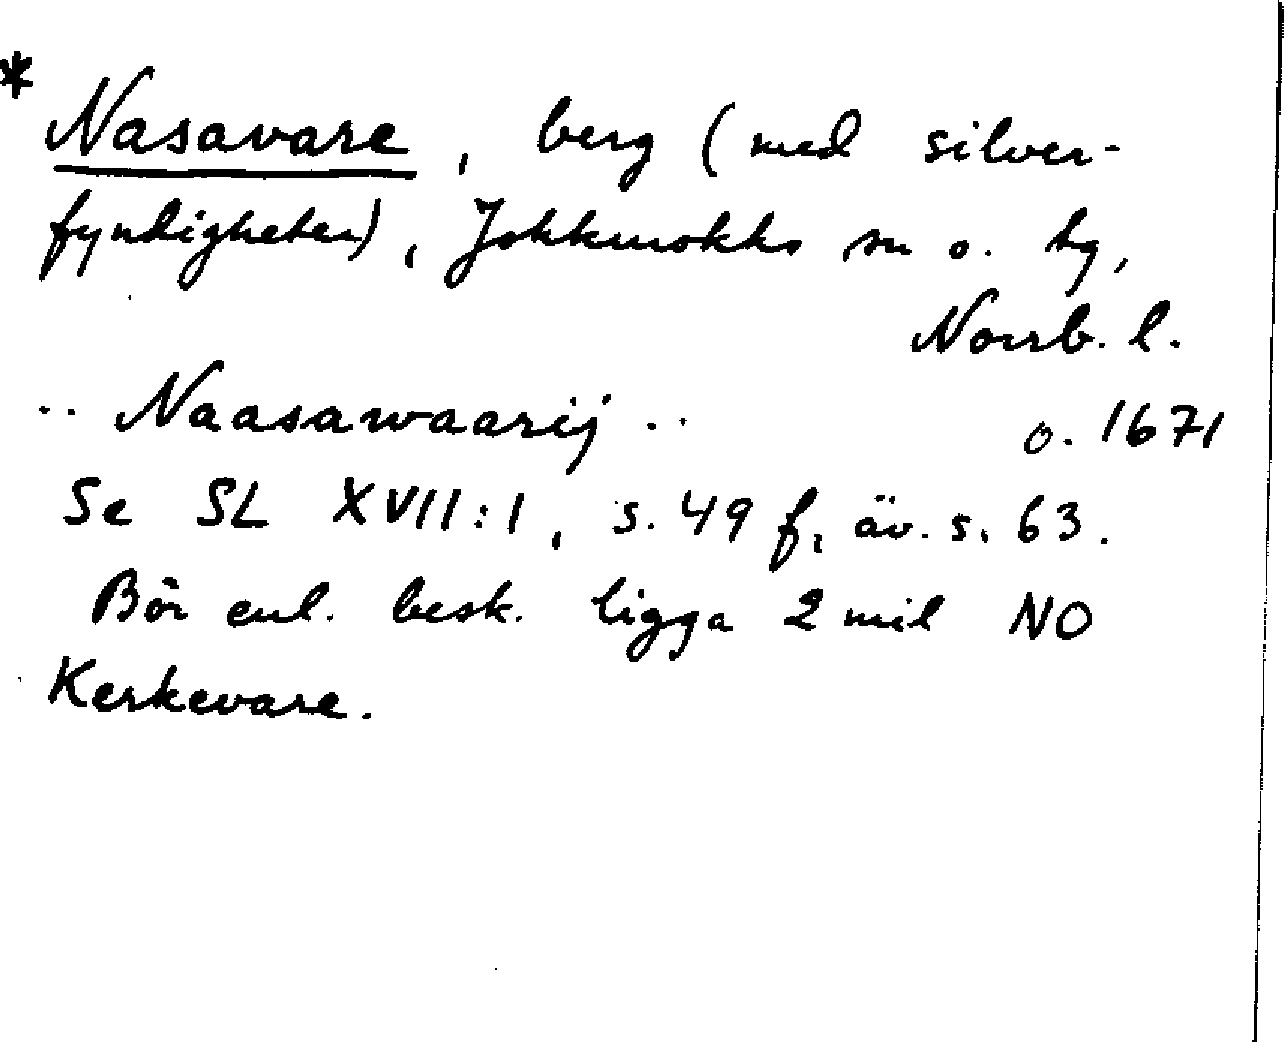 * Nasavare, berg (med silver-
fyndigheter), Jokkmokks sn o. tg,
Norrb. l.
.. Naasawaarij .. o. 1671
Se SL XVII:1, s. 49 f, äv. s. 63.
Bör enl. besk. ligga 2 mil NO
Kerkevare.